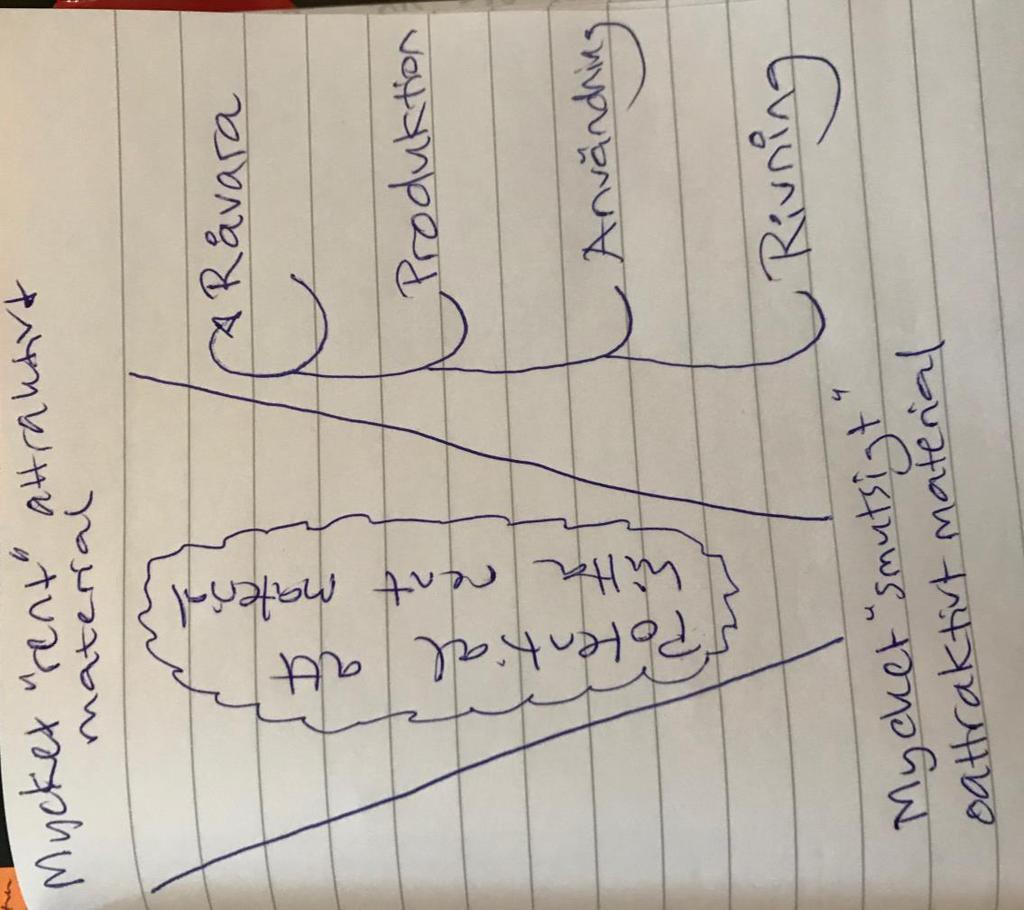 Mycket "rent" attraktivt
material
Råvara
Produktion
Användning
Rivning
Potential
att
hitta
rent
material
Mycket "smutsigt"
oattraktivt material